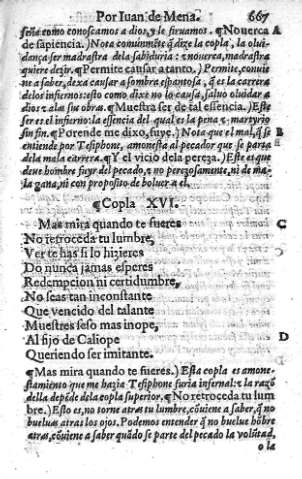 Por Iuan de Mena. 667
seña como conoscamos a dios, y le siruamos. ¶Nouerca A
de sapiencia.) Nota comũmẽte q̃ dize la copla, la olui-
dança ser madrastra dela sabiduria: ⁊ nouerca, madrastra
quiere dezir. ¶Permite causar a tanto.) Permite, conuie
ne a saber, dexa causar a sombra espantosa, q̃ es la carrera
delos infernos: esto como dixe no lo causa, saluo oluidar a
dios ⁊ a las sus obras. ¶Muestra ser de tal essencia.) Este
ser es el infierno: la essencia del qual es la pena ⁊ martyrio
sin fin. ¶Porende me dixo, fuye.) Nota que el mal, q̃ se B
entiende por Tesiphone, amonesta al pecador que se parta
dela mala carrera. ¶Y el vicio dela pereza.) Este es que
deue hombre fuyr del pecado, ⁊ no perezosamente, ni de ma-
la gana, ni con proposito de boluer a el.
¶Copla XVI.
Mas mira quando te fueres C
No retroceda tu lumbre,
Ver te has si lo hizieres
Do nunca jamas esperes
Redempcion ni certidumbre,
No seas tan inconstante
Que vencido del talante
Muestres seso mas inope,
Al fijo de Caliope D
Queriendo ser imitante.
¶Mas mira quando te fueres.) Esta copla es amone-
stamiẽto que me hazia Tesiphone furia infernal: ⁊ la razõ
della depẽde dela copla superior. ¶No retroceda tu lum
bre.) Esto es, no torne atras tu lumbre, cõuiene a saber, q̃ no
bueluas atras los ojos. Podemos entender q̃ no buelue hõbre
atras, cõuiene a saber quãdo se parte del pecado la volũtad,
o la